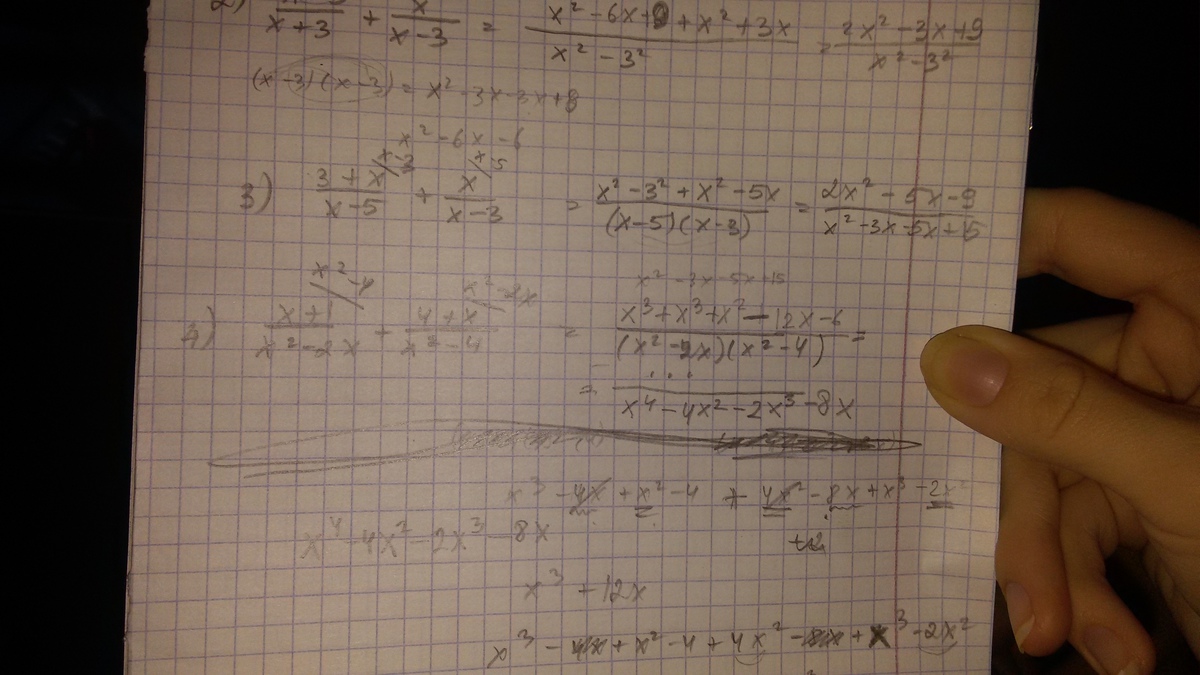 2) x-3/x+3 + x/x-3 = x² - 6x + 9 + x² + 3x/x² - 3² = 2x² - 3x + 9/x² - 3²
(x - 3)(x - 3) = x² - 3x - 3x + 8
x² - 6x - 6
x-3 x-5
3) 3 + x/x - 5 + x/x - 3 = x² - 3² + x² - 5x/(x-5)(x-3) = 2x² - 5x - 9/x² - 3x - 5x + 15
x² - 3x - 5x + 15
x² - 4 x² - 2x
4) x + 1/x² - 2x + 4 + x/x² - 4 = x³ + x³ + x² - 12x - 6/(x² - 2x)(x² - 4) =
= .../x⁴ - 4x² - 2x³ - 8x
x³ - 4x + x² - 4 + 4x² - 8x + x³ - 2x²
x⁴ - 4x² - 2x³ - 8x
x³ + 12x
x³ - 4x + x² - 4 + 4x² - 8x + x³ - 2x²